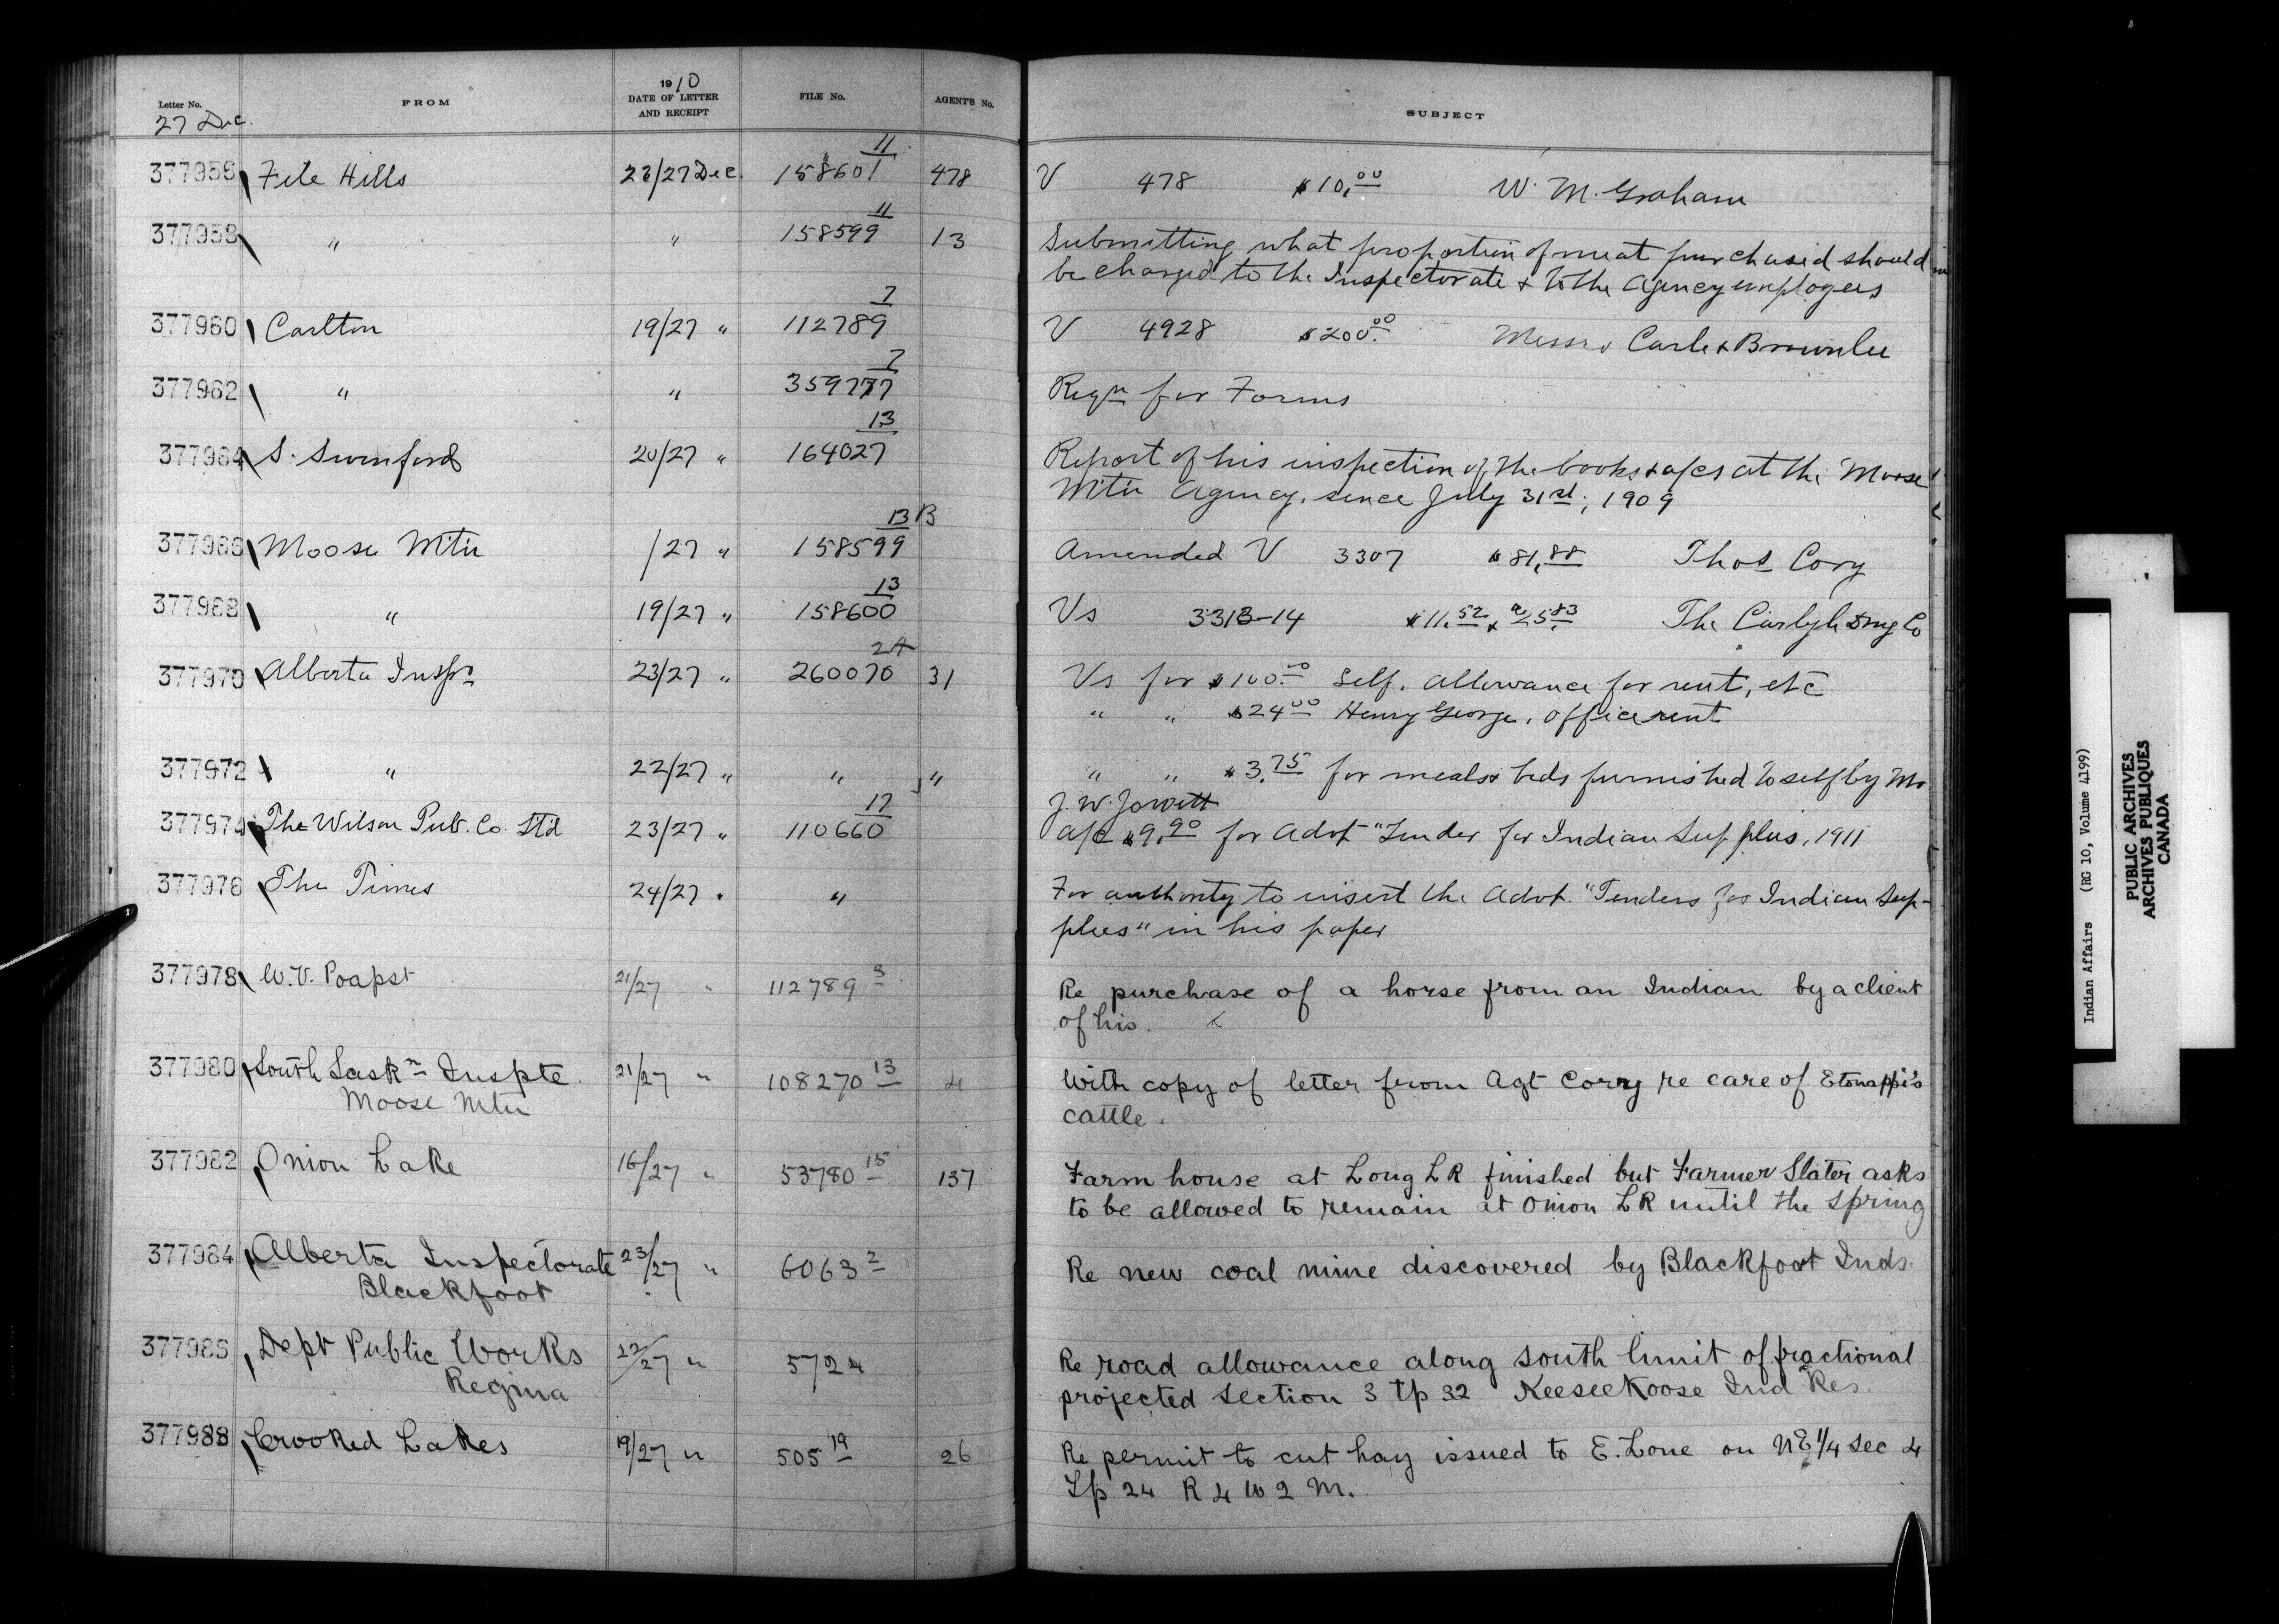 Letter No. FROM 1910 DATE OF LETTER AND RECEIPT FILE No. AGENT'S No. SUBJECT
27 Dec.
377956 File Hills 23/27 Dec. 158601 11 478 V 478 $10.00 W. M. Graham
377958 " " 158599 11 13 Submitting what proportion of meat purchased should
be charged to the Inspectorate & to the Agency employees
377960 Carlton 19/27 " 112789 7 V 4928 $200.00 Messrs Carle & Brownlee
377962 " " 359777 7 Reqn for Forms
377964 S. Swinford 20/27 " 164027 13 Report of his inspection of the books & a/cs at the Moose
Mtn Agency, since July 31st, 1909
377966 Moose Mtn /27 " 158599 13 B Amended V 3307 $81.88 Thos Cory
377968 " 19/27 " 158600 13 Vs 3313-14 $11.52 & 25.83 The Carlyle Drug Co
377970 Alberta Inspr 23/27 " 260070 2A 31 Vs for $100.00 Self, allowance for rent, etc
" " $24.00 Henry George, office rent
377972 " 22/27 " " " " " $3.75 for meals & beds furnished to self by Mr
J. W. Jowett
377974 The Wilson Pub. Co. Ltd 23/27 " 110660 17 a/c $9.90 for advt "Tender for Indian Supplies, 1911
377976 The Times 24/27 " " For authority to insert the advt. "Tenders for Indian Sup-
plies" in his paper
377978 W.V. Poapst 21/27 " 112789 3 Re purchase of a horse from an Indian by a client
of his.
377980 South Saskn Inspte. 21/27 " 108270 13 4 With copy of letter from Agt Cory re care of Etonappi's
Moose Mtn cattle.
377982 Onion Lake 16/27 " 53780 15 137 Farm house at Long LK finished but Farmer Slater asks
to be allowed to remain at Onion LK until the spring
377984 Alberta Inspectorate 23/27 " 6063 2 Re new coal mine discovered by Blackfoot Inds.
Blackfoot
377986 Dept Public Works 22/27 " 5724 Re road allowance along south limit of fractional
Regina projected section 3 tp 32 Keeseekoose Ind Res.
377988 Crooked Lakes 19/27 " 505 19 26 Re permit to cut hay issued to E. Lone on NE 1/4 Sec 4
Tp 24 R 4 W 2 M.
Indian Affairs (RG 10, Volume 4199)
PUBLIC ARCHIVES
ARCHIVES PUBLIQUES
CANADA